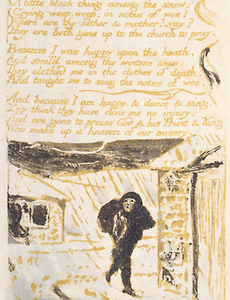 A little black thing among the snow:
Crying weep, weep, in notes of woe!
Where are thy father & mother? say?
They are both gone up to the church to pray.
Because I was happy upon the heath,
And smil'd among the winters snow:
They clothed me in the clothes of death,
And taught me to sing the notes of woe.
And because I am happy, & dance & sing,
They think they have done me no injury:
And are gone to praise God & his Priest & King
Who make up a heaven of our misery.